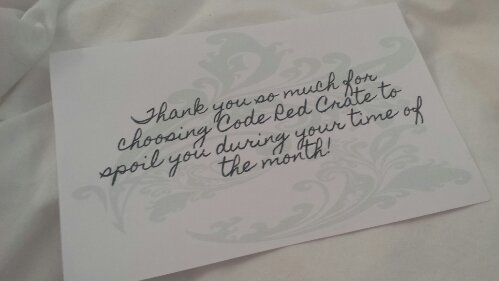 Thank you so much for
choosing Code Red Crate to
spoil you during your time of
the month!